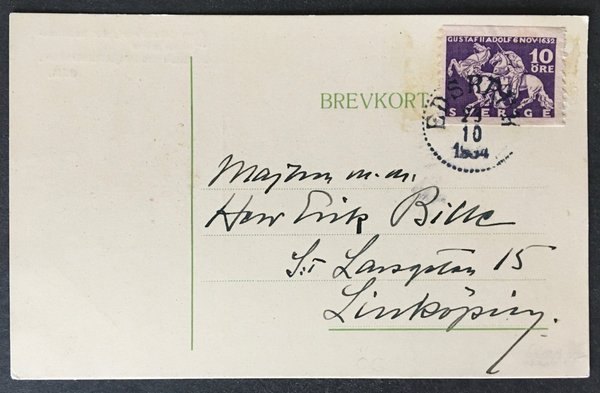 GUSTAF II ADOLF 6 NOV 1632
10
ÖRE
SVERIGE
BREVKORT
10
1934
Majoren m.m.
Herr Erik Bille
S:t Larsgatan 15
Linköping.